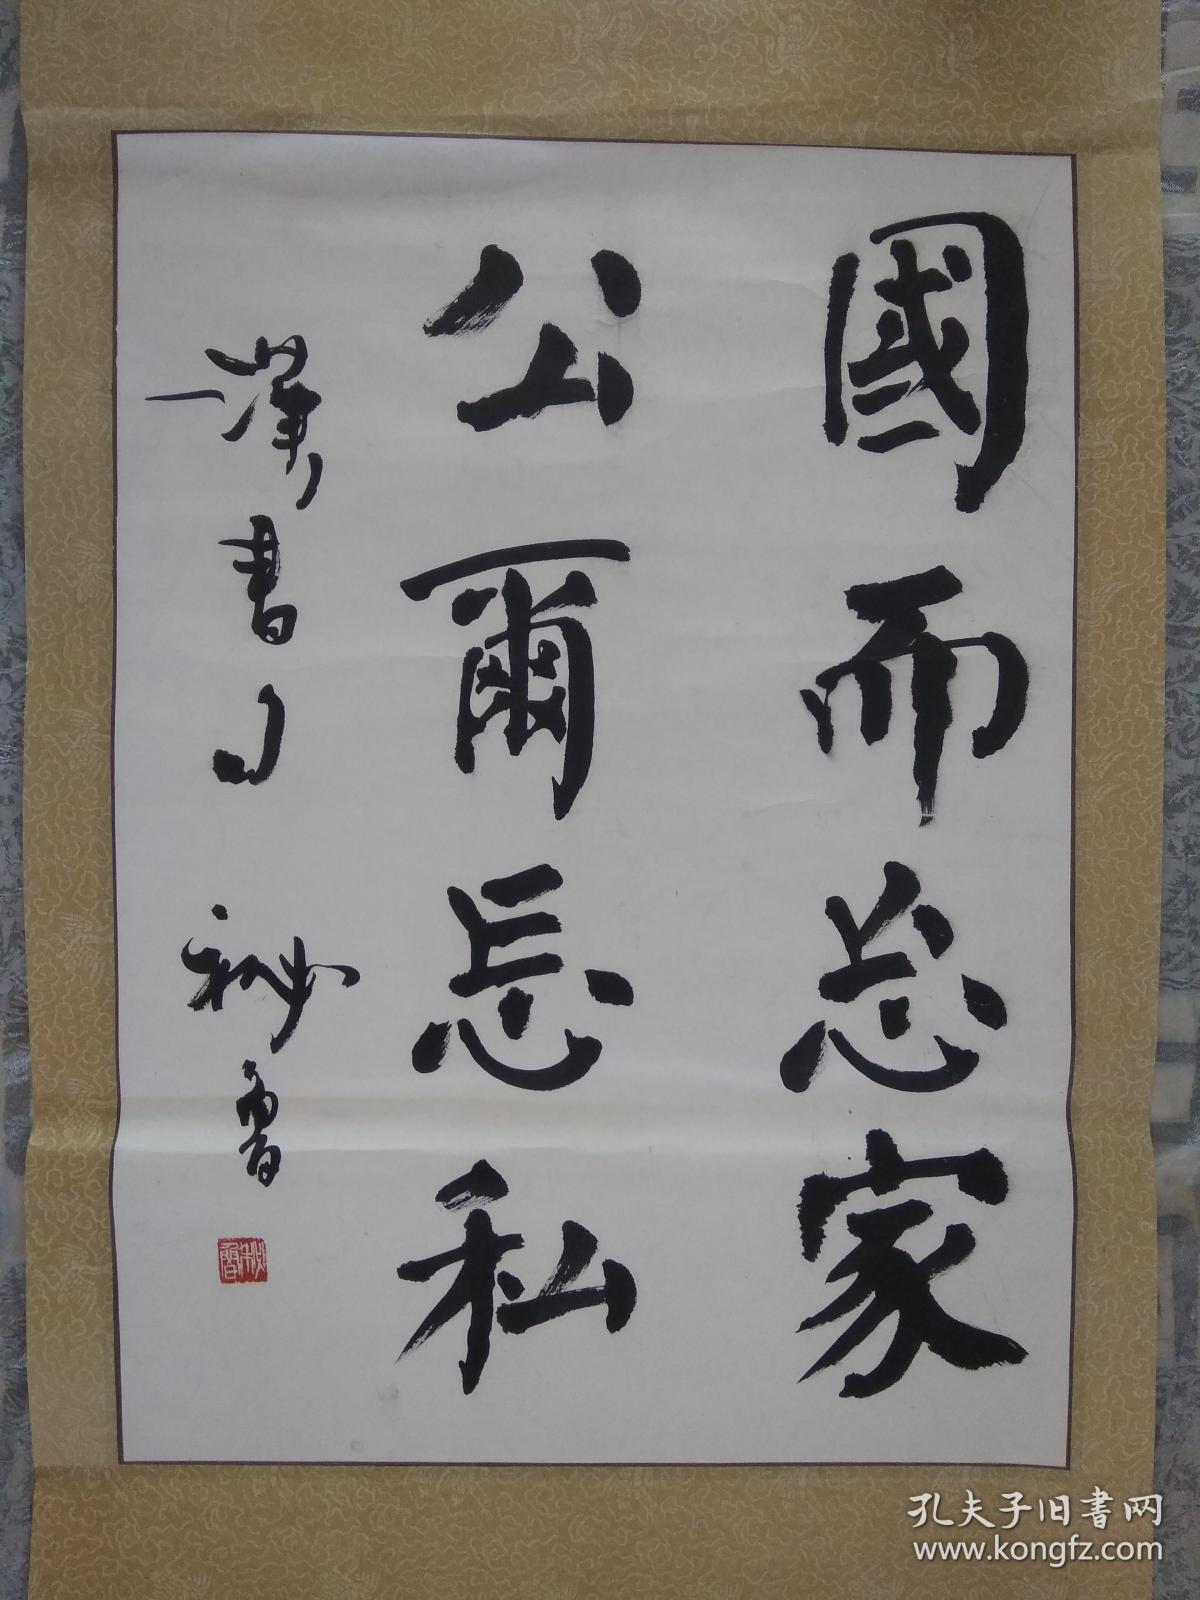 國而忘家
公爾忘私
漢書句 秘魯
孔夫子旧书网
www.kongfz.com